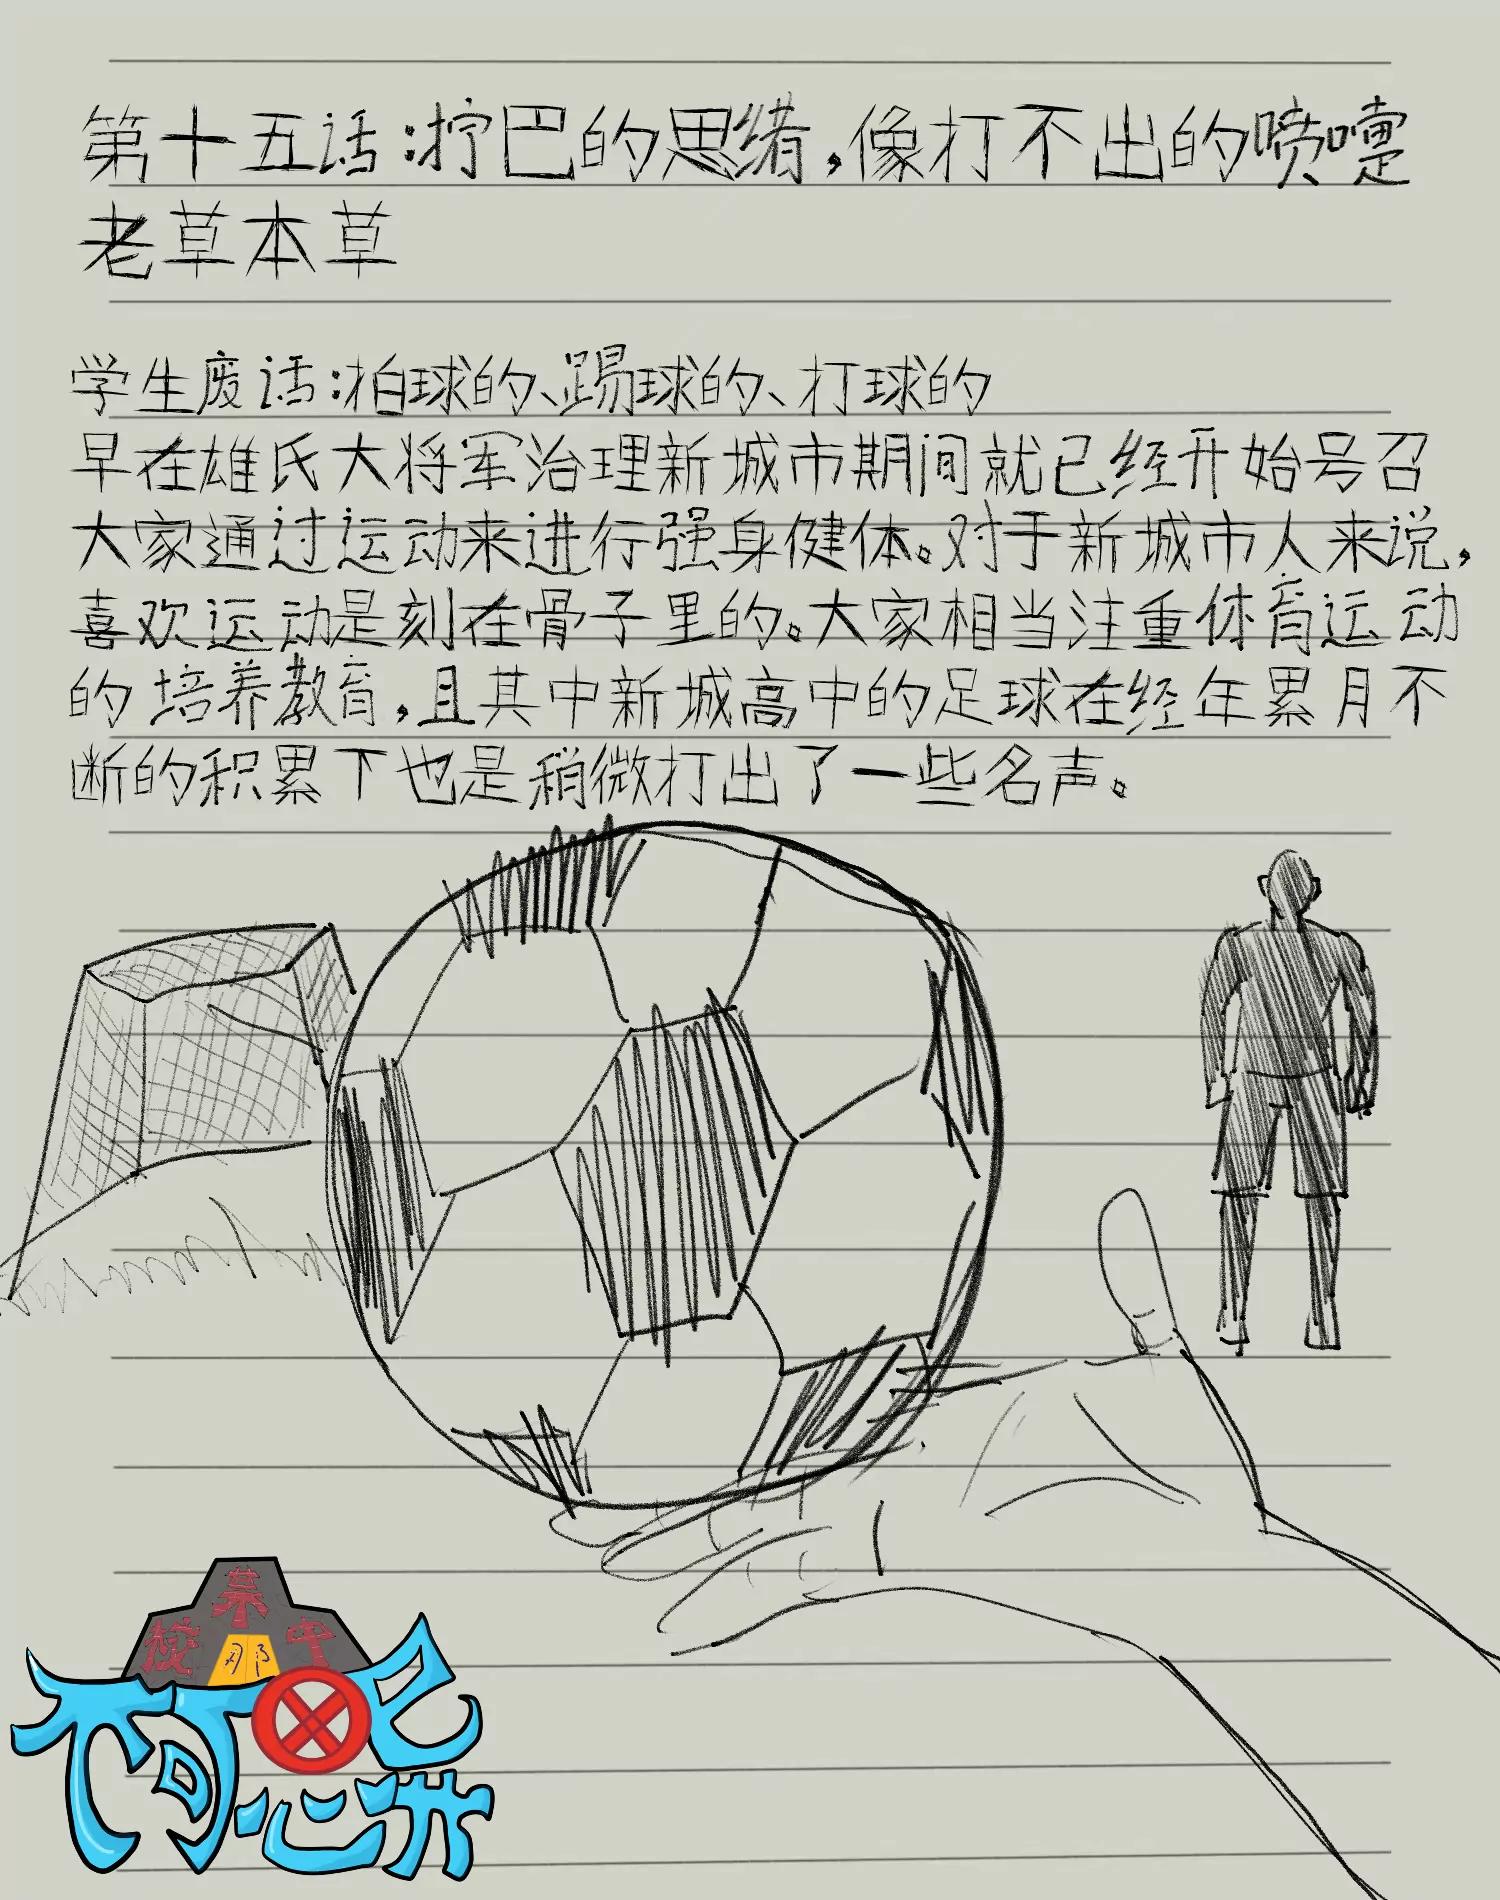 第十五话:拧巴的思绪,像打不出的喷嚏
老草本草
学生废话:拍球的、踢球的、打球的
早在雄氏大将军治理新城市期间就已经开始号召
大家通过运动来进行强身健体。对于新城市人来说,
喜欢运动是刻在骨子里的。大家相当注重体育运动
的培养教育,且其中新城高中的足球在经年累月不
断的积累下也是稍微打出了一些名声。